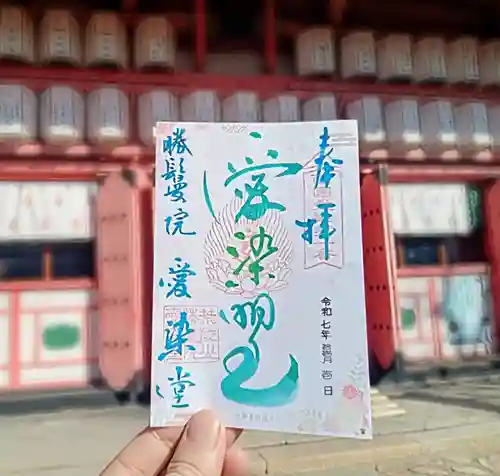 奉拝
愛染明王
令和七年 月 壱日
勝鬘院 愛染堂